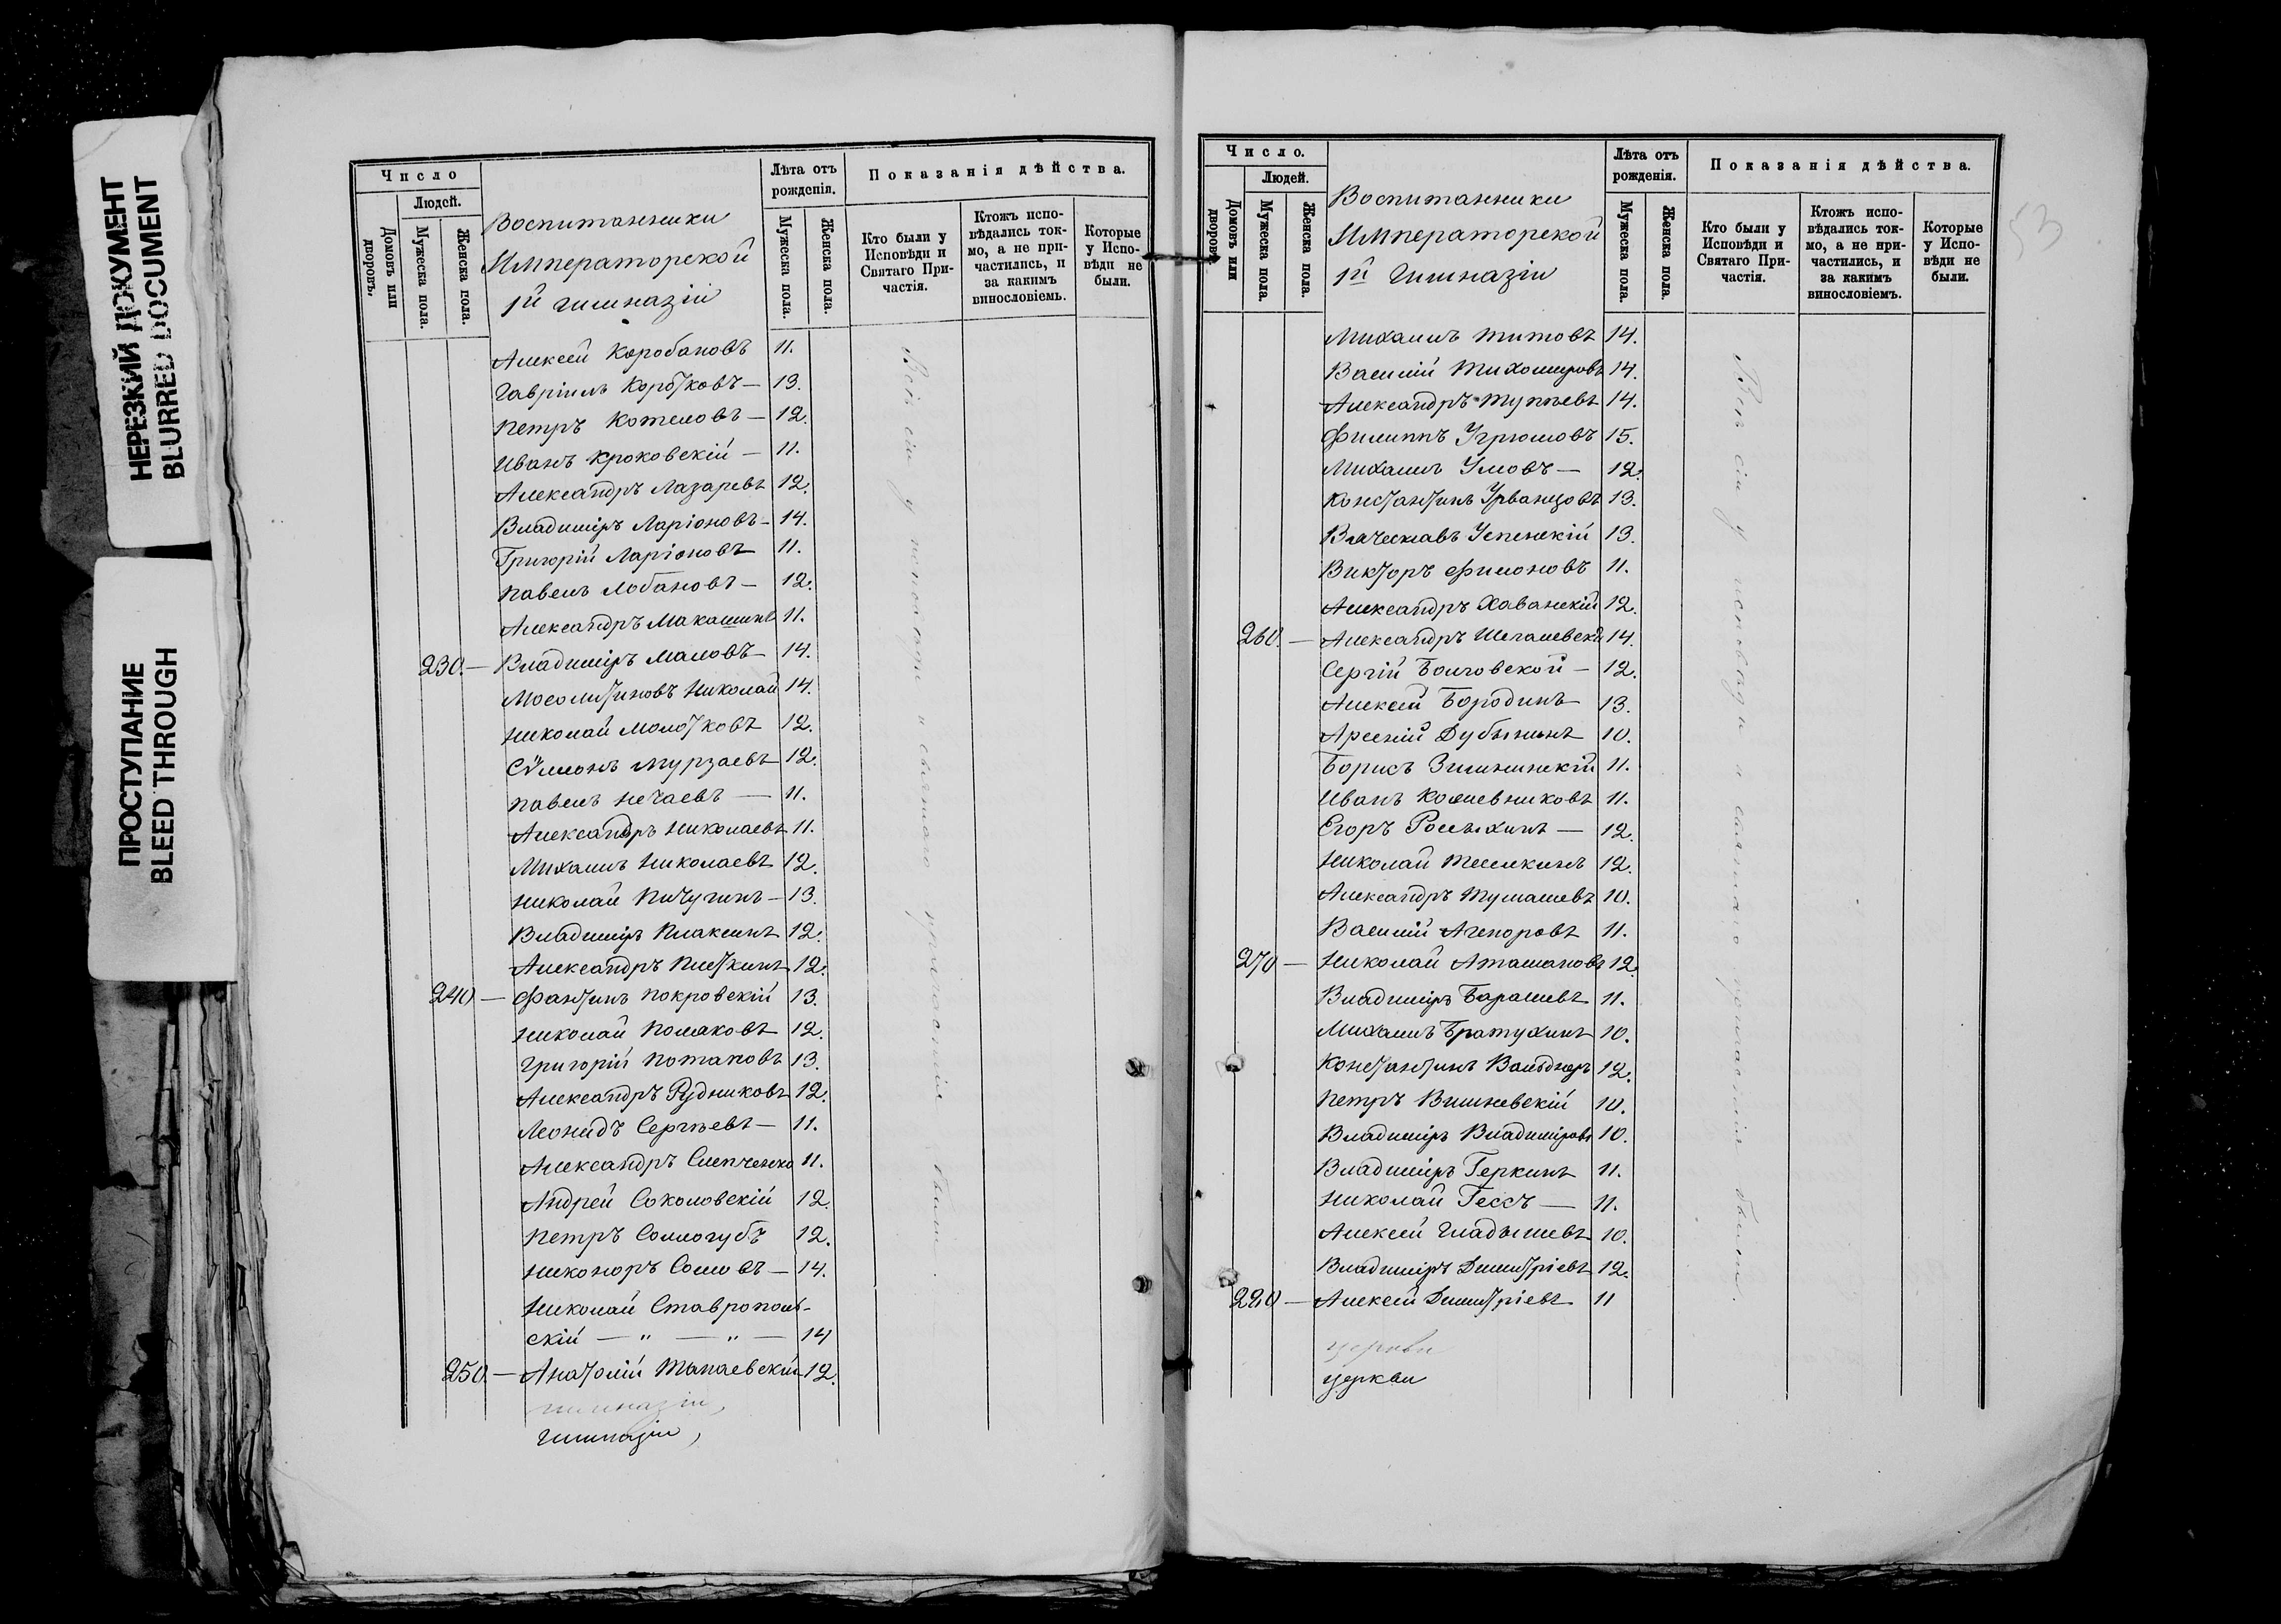 НЕРЕЗКИЙ ДОКУМЕНТ
BLURRED DOCUMENT
ПРОСТУПАНИЕ
BLEED THROUGH
Число
Людей.
Домовъ или дворовъ.
Мужеска пола.
Женска пола.
Воспитанники
Императорской
1й гимназіи
Лѣта отъ рожденія.
Мужеска пола.
Женска пола.
Показанія дѣйства.
Кто были у Исповѣди и Святаго Причастія.
Ктожъ исповѣдались токмо, а не причастились, и за какимъ винословіемъ.
Которые у Исповѣди не были.
Алексей Коробановъ 11.
Гавріилъ Коротковъ — 13.
Петръ Котеловъ — 12.
Иванъ Кроковскій — 11.
Александръ Лазаревъ 12.
Владиміръ Ларіоновъ — 14.
Григорій Ларіоновъ 11.
Павелъ Лобановъ — 12.
Александръ Макашинъ 11.
230. — Владиміръ Маловъ — 14.
Мосолитиновъ Николай 14.
Николай Молотковъ 12.
Сѵмеонъ Мурзаевъ 12.
Павелъ Нечаевъ — 11.
Александръ Николаевъ 11.
Михаилъ Николаевъ 12.
Николай Пичугинъ — 13.
Владиміръ Плаксинъ 12.
Александръ Плеткинъ 12.
240 — Фантинъ Покровскій 13.
Николай Полаковъ 12.
Григорій Потаповъ 13.
Александръ Рудниковъ 12.
Леонидъ Сергѣевъ — 11.
Александръ Слепченко 11.
Андрей Соколовскій 12.
Петръ Соллогубъ 12.
Никоноръ Сомовъ — 14.
Николай Ставрополь-
скій — " — " — 14
250. — Анатолій Танаевскій 12.
гимназіи,
гимназіи,
Всѣ сіи у исповѣди и святаго причастія были.
Число.
Людей.
Домовъ или дворовъ.
Мужеска пола.
Женска пола.
Воспитанники
Императорской
1й Гимназіи
Лѣта отъ рожденія.
Мужеска пола.
Женска пола.
Показанія дѣйства.
Кто были у Исповѣди и Святаго Причастія.
Ктожъ исповѣдались токмо, а не причастились, и за какимъ винословіемъ.
Которые у Исповѣди не были.
53
Михаилъ Титовъ 14.
Василій Тихомировъ 14.
Александръ Тупѣевъ 14.
Филиппъ Угрюмовъ 15.
Михаилъ Умовъ — 12.
Константинъ Урванцовъ 13.
Вячеславъ Успенскій 13.
Викторъ Филоновъ 11.
Александръ Хаванскій 12.
260. — Александръ 14.
Сергій Болховской — 12.
Алексей Бородинъ 13.
Арсеній Дубынинъ 10.
Борисъ Зимнинскій 11.
Иванъ Кожевниковъ 11.
Егоръ Россыхинъ — 12.
Николай Темкинъ 12.
Александръ Тумашевъ 10.
Василій Агеноровъ 11.
270 — Николай Аташановъ 12.
Владиміръ Барашевъ 11.
Михаилъ Братухинъ 10.
Константинъ 12.
Петръ Вишневскій 10.
Владиміръ Владиміровъ 10.
Владиміръ Геркинъ 11.
Николай Гессъ — 11.
Алексей Гладышевъ 10.
Владиміръ Димитріевъ 12.
220 — Алексей Димитріевъ 11
церкви
церкви
Всѣ сіи у исповѣди и святаго причастія были.